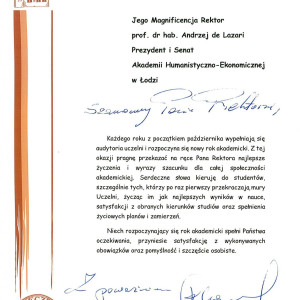 Jego Magnificencja Rektor
prof. dr hab. Andrzej de Lazari
Prezydent i Senat
Akademii Humanistyczno-Ekonomicznej
w Łodzi
Szanowny Panie Rektorze,
Każdego roku z początkiem października wypełniają się
audytoria uczelni i rozpoczyna się nowy rok akademicki. Z tej
okazji pragnę przekazać na ręce Pana Rektora najlepsze
życzenia i wyrazy szacunku dla całej społeczności
akademickiej. Serdeczne słowa kieruję do studentów,
szczególnie tych, którzy po raz pierwszy przekraczają mury
Uczelni, życząc im jak najlepszych wyników w nauce,
satysfakcji z obranych kierunków studiów oraz spełnienia
życiowych planów i zamierzeń.
Niech rozpoczynający się rok akademicki spełni Państwa
oczekiwania, przyniesie satysfakcję z wykonywanych
obowiązków oraz pomyślność i szczęście osobiste.
Z poważaniem